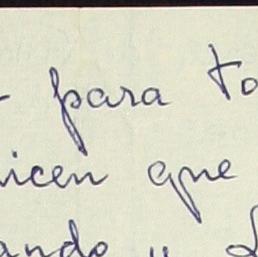 para to
icen que
ando y